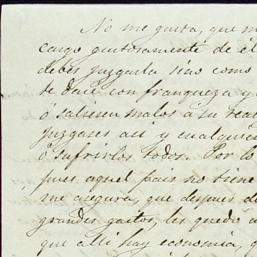 No me gusta, que m
cargo gustosamente de él
debes juzgarla sino como
te daré con franqueza y
ó saliesen malos a su rea
juzgases así y cualquier
ó sufrirlos todos. Por lo
pues aquel pais no tiene
me asegura, que despues de
grandes gastos, les quedó u
que alli hay economia, q